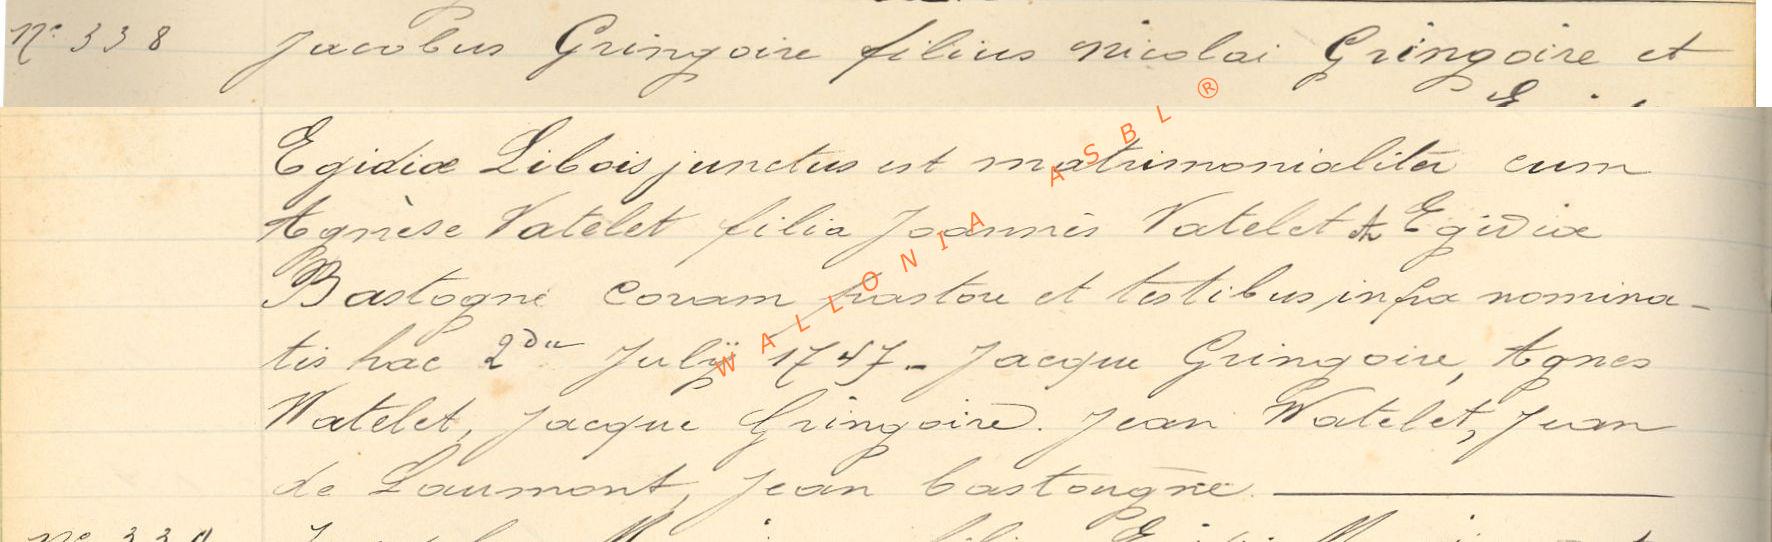 N° 338 Jacobus Gringoire filius Nicolai Gringoire et
Egidiæ Libois junctus est matrimonialiter cum
Agnèse Watelet filia Joannis Watelet & Egidiæ
Bastogne coram pastore et testibus infra nomina-
tis hac 2da Julÿ 1747 - Jacque Gringoire, Agnes
Watelet, Jacque Gringoire. Jean Watelet, Jean
de Laumont, Jean bastougne.
WALLONIA ASBL ®